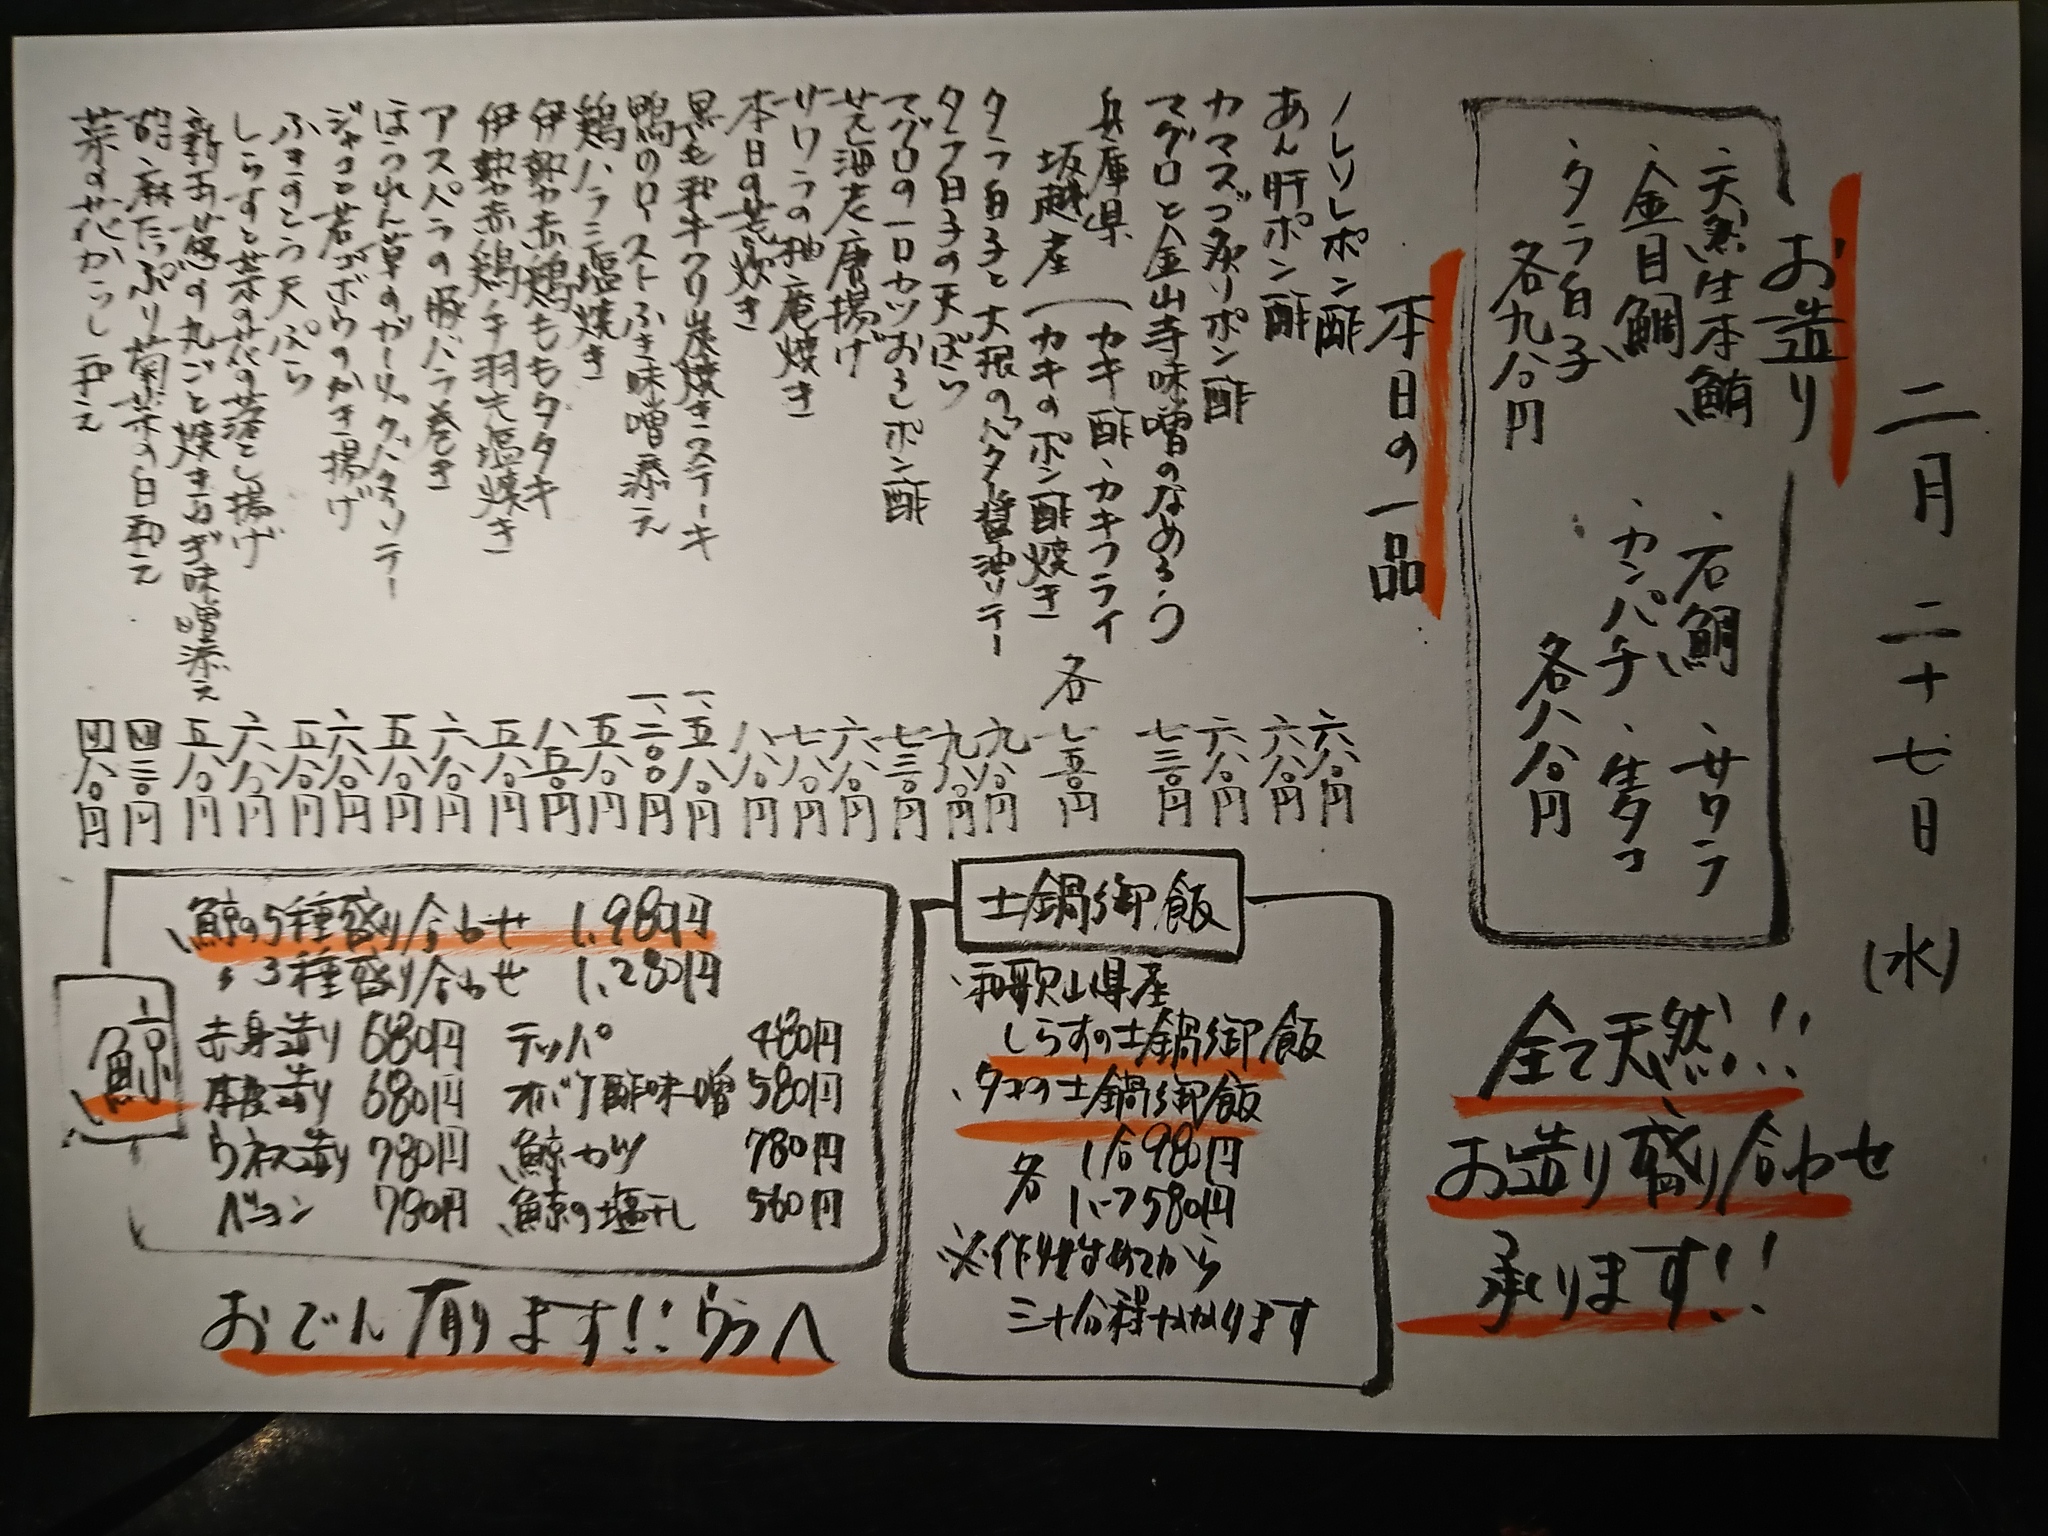 二月二十七日(水)
お造り
・天然生本鮪
・金目鯛
・タラ白子
各九八〇円
・石鯛
・サワラ
・カンパチ
・生タコ
各八八〇円
全て天然!!
お造り盛り合わせ
承ります!!
本日の一品
ノレソレポン酢 六八〇円
あん肝ポン酢 六八〇円
カマスゴ炙りポン酢 六八〇円
マグロと金山寺味噌のなめろう 七三〇円
兵庫県
坂越産
カキ酢、カキフライ
カキのポン酢焼き
各七五〇円
タラ白子と大根のバター醤油ソテー 九八〇円
タラ白子の天ぷら 九八〇円
マグロの一口カツおろしポン酢 七三〇円
芝海老唐揚げ 六八〇円
サワラの柚庵焼き 七八〇円
本日の荒炊き 八八〇円
黒毛和牛クリ炭焼きステーキ 一、五八〇円
鴨のロースト ふき味噌添え 一、二〇〇円
鶏ハラミ塩焼き 五八〇円
伊勢赤鶏ももタタキ 八五〇円
伊勢赤鶏手羽先塩焼き 五八〇円
アスパラの豚バラ巻き 六八〇円
ほうれん草のガーリックバターソテー 五八〇円
ジャコと若ゴボウのかき揚げ 六八〇円
ふきのとう天ぷら 五八〇円
しらすと菜の花の落とし揚げ 六八〇円
新玉葱の丸ごと焼きねぎ味噌添え 五八〇円
胡麻たっぷり菊菜の白和え 四三〇円
菜の花からし和え 四八〇円
土鍋御飯
・和歌山県産
しらすの土鍋御飯
・タコの土鍋御飯
各
1合980円
1.5 1,580円
※作り始めてから
三十分程かかります
鯨
鯨の5種盛り合わせ 1,980円
〃3種盛り合わせ 1,280円
赤身造り 680円 テッパ 480円
本皮造り 680円 オバケ酢味噌 580円
ウネス造り 780円 鯨カツ 780円
ベーコン 780円 鯨の塩干し 560円
おでん有ります!!ウラへ